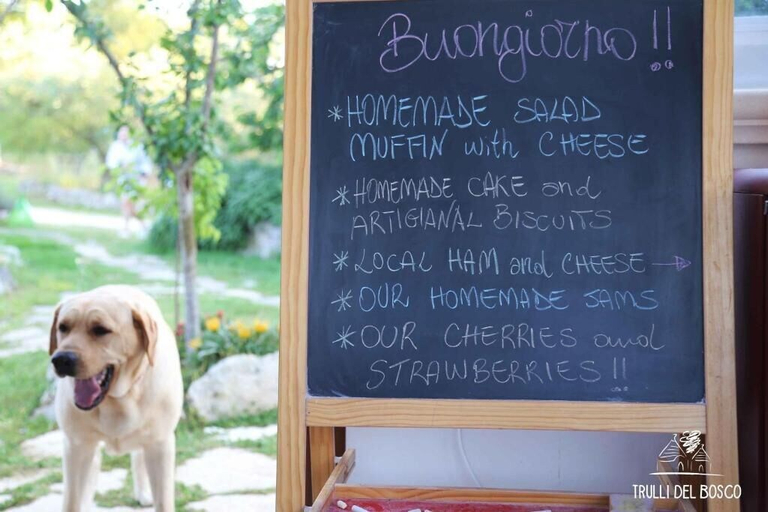 Buongiorno !!
* HOMEMADE SALAD
MUFFIN with CHEESE
* HOMEMADE CAKE and
ARTIGIANAL BISCUITS
* LOCAL HAM and CHEESE →
* OUR HOMEMADE JAMS
* OUR CHERRIES and
STRAWBERRIES !!
TRULLI DEL BOSCO